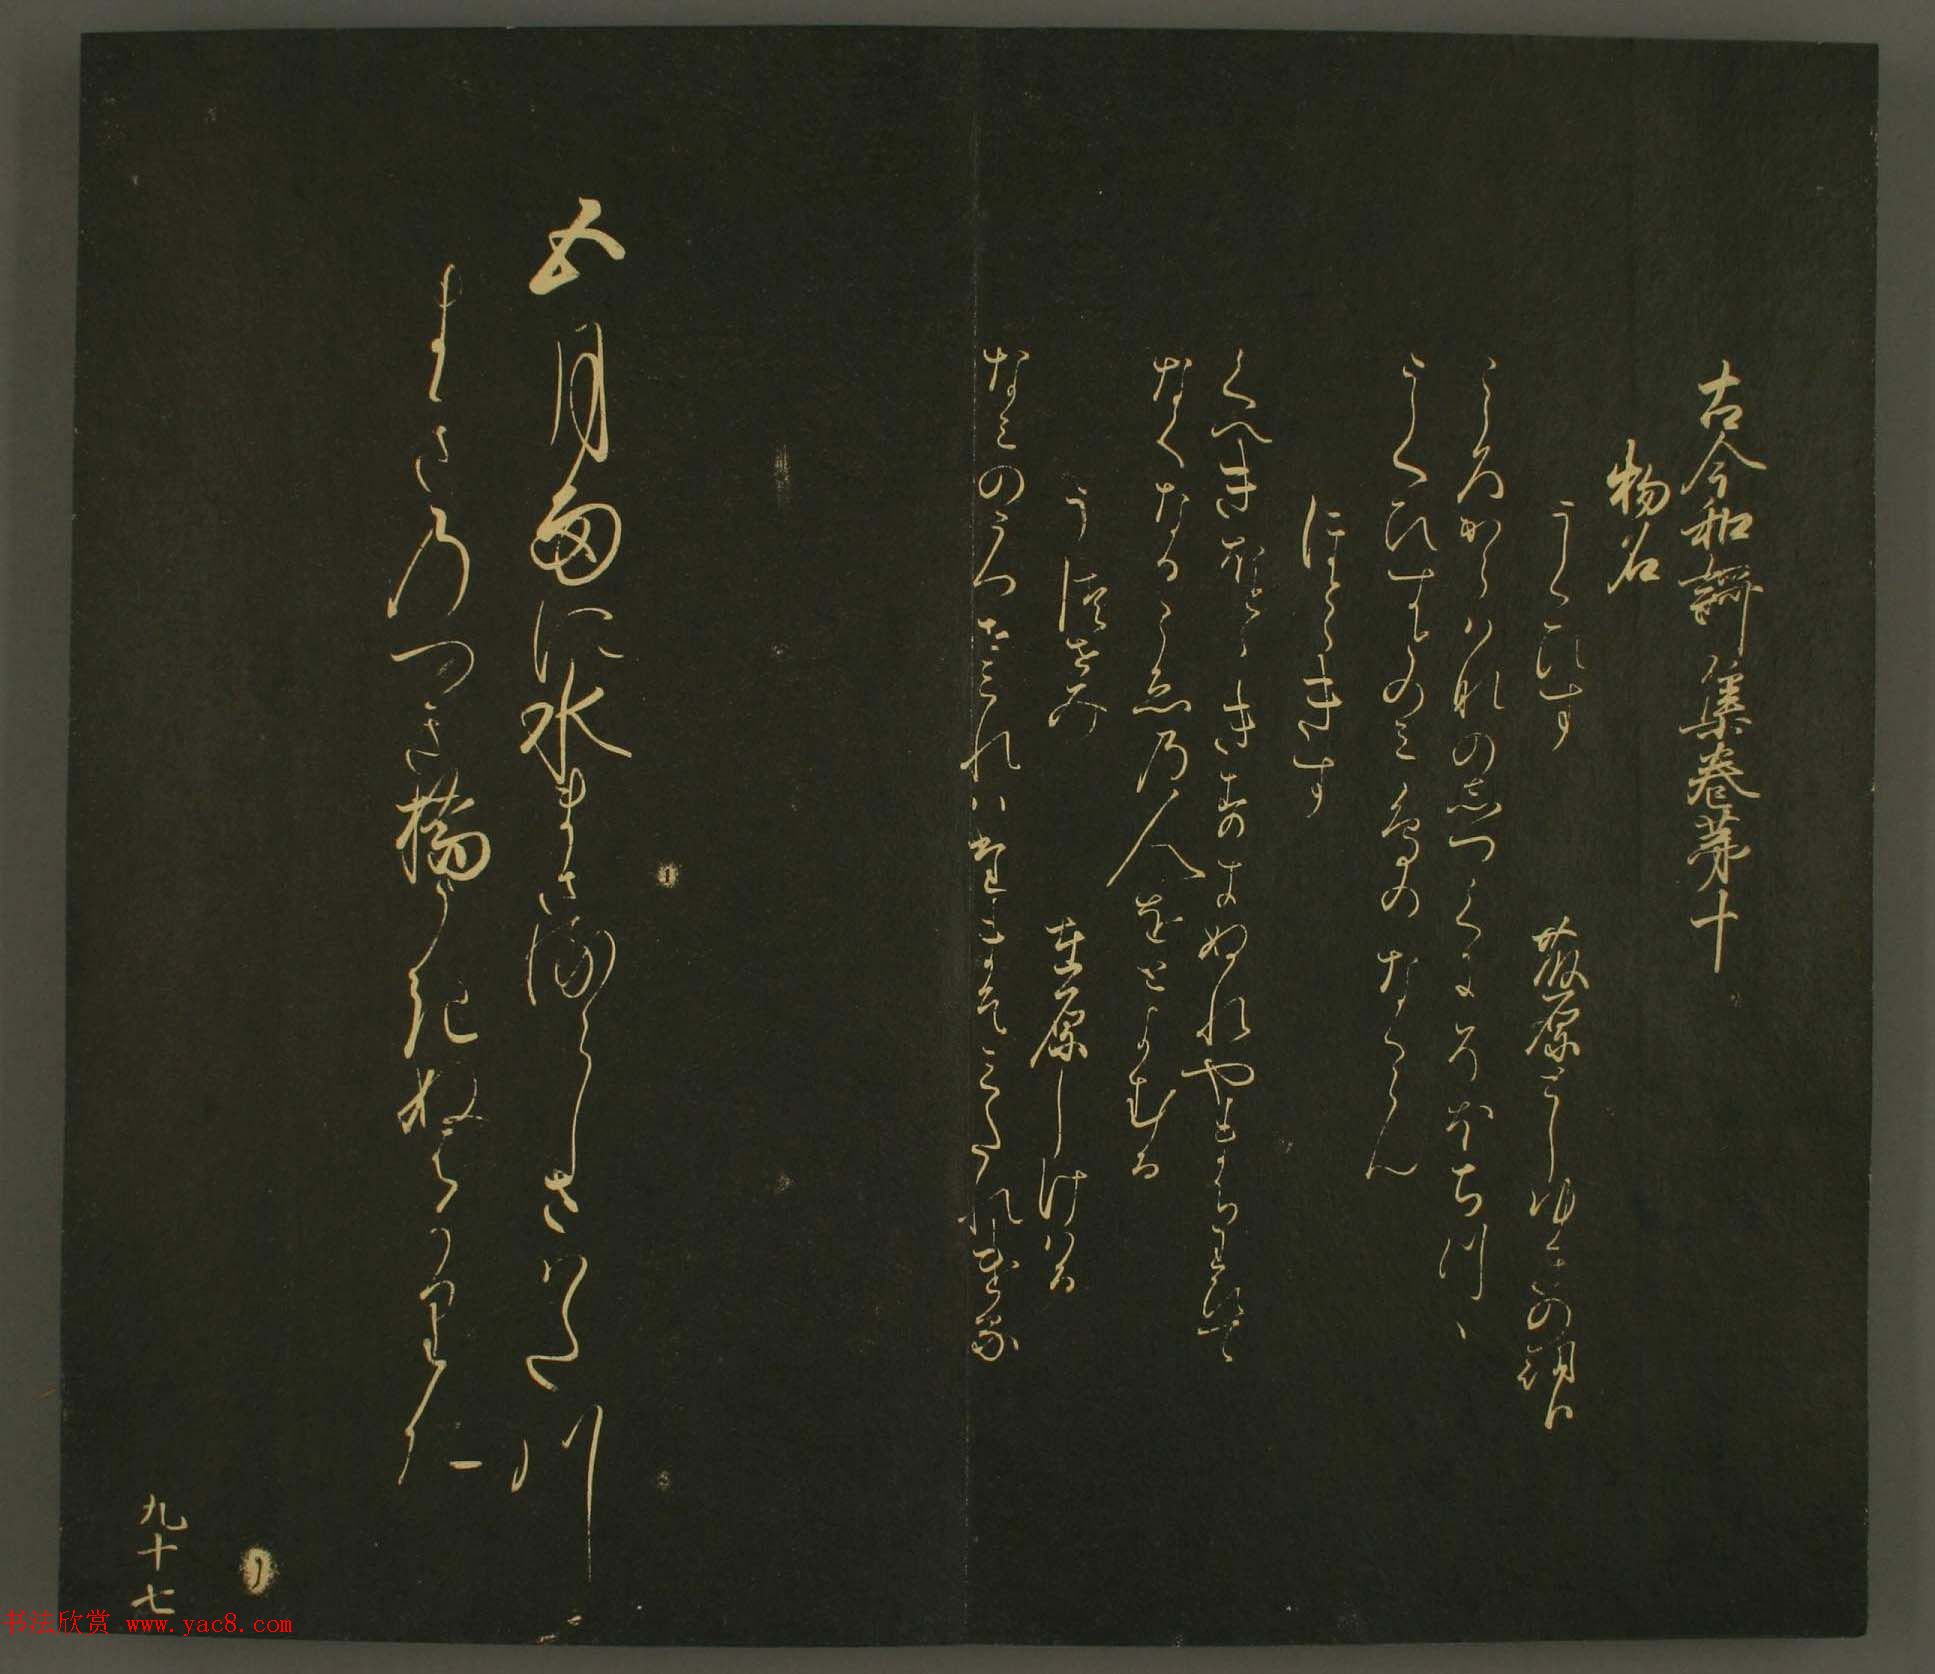 古今和謌集巻第十
物名
うくひす 藤原としゆきの朝臣
こゝろからはなのしつくにそほちつゝ
うくひすとのみ鳥のなくらん
ほとゝきす
くへきほとゝきすきぬれやまちわひて
なくなるこゑの人をとよむる
うつせみ 在原しけはる
なみのうつせみれはたまそみたれける
五月雨に水まさるらしさはた川
まきのつき橋うきぬはかりに
九十七
书法欣赏 www.yac8.com